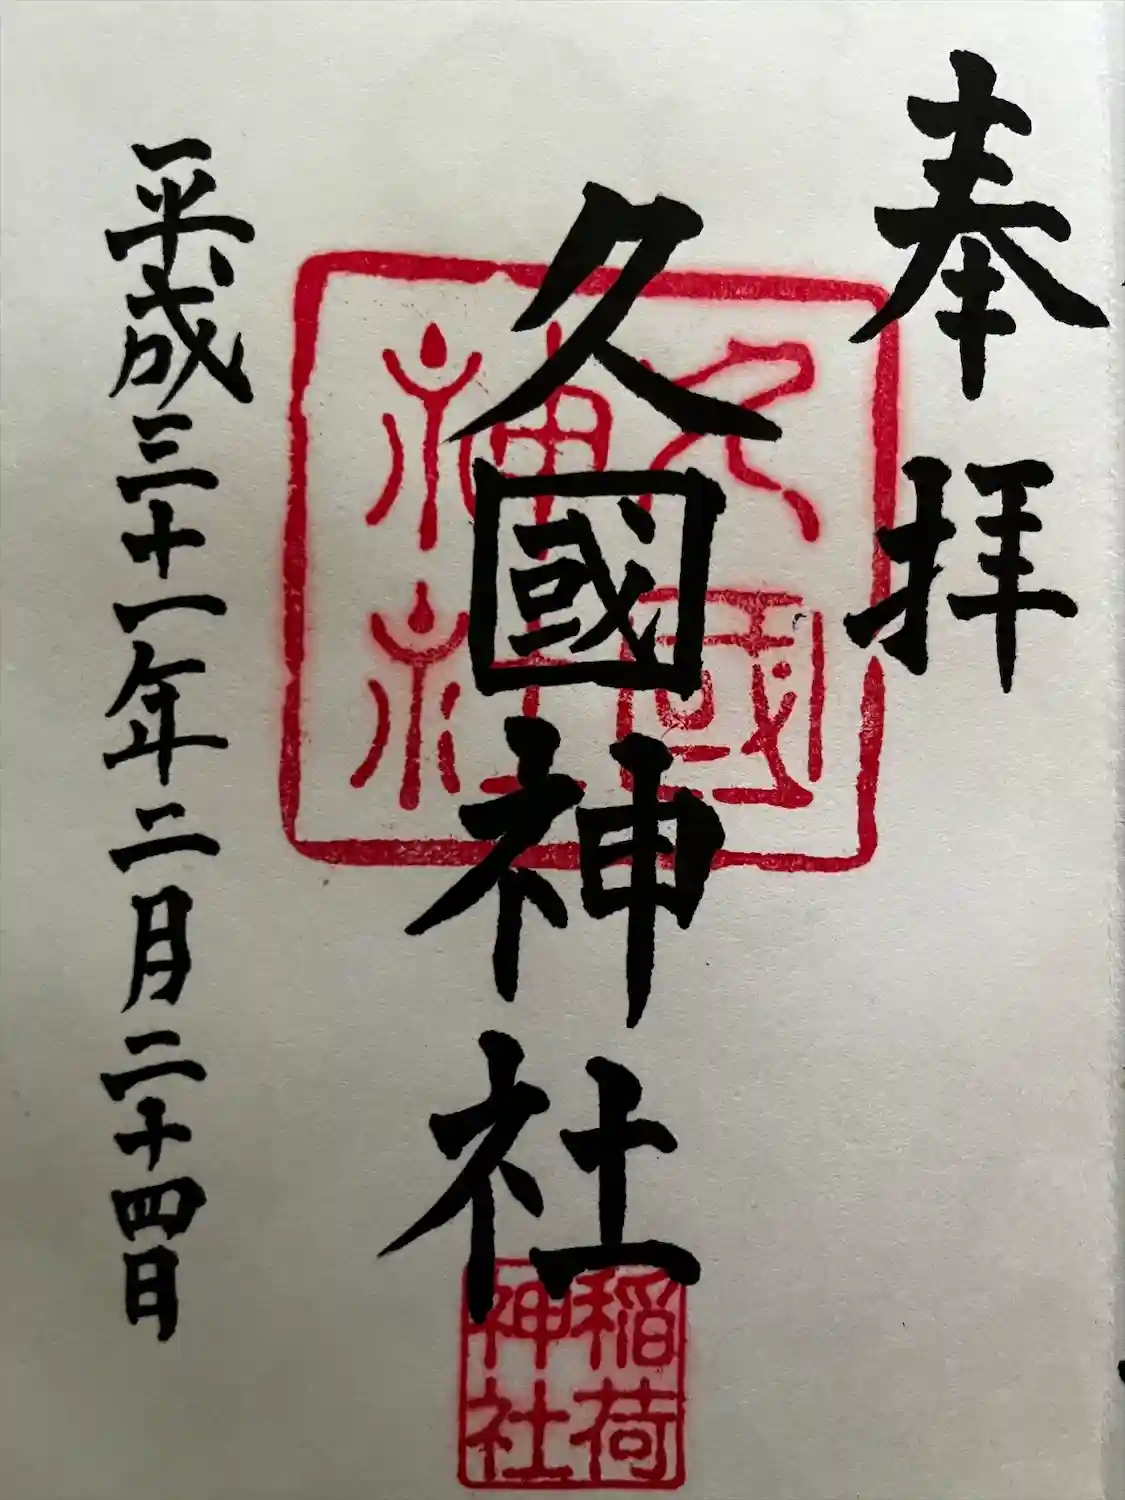 奉拝
久國神社
平成三十一年二月二十四日
久國神社
稲荷神社